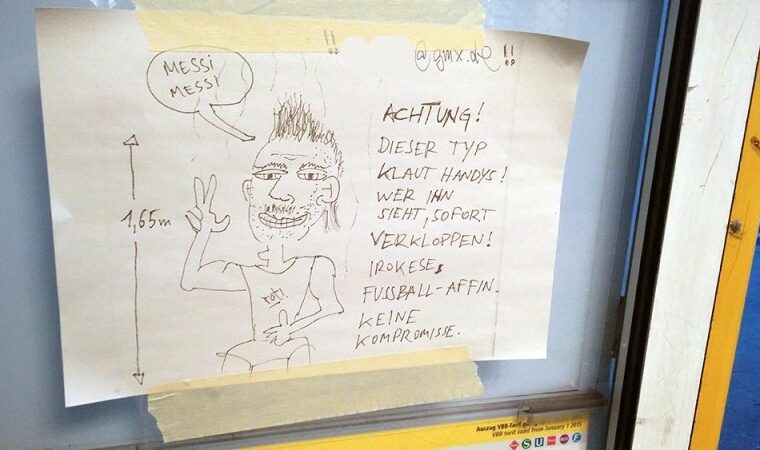 !! @gmx.de !!
MESSI
MESSI
1,65m
ACHTUNG!
DIESER TYP
KLAUT HANDYS!
WER IHN
SIEHT, SOFORT
VERKLOPPEN!
IROKESE,
FUSSBALL-AFFIN.
KEINE
KOMPROMISSE.
Auszug VBB-Tarif
VBB tarif valid from January 1 2015
S U